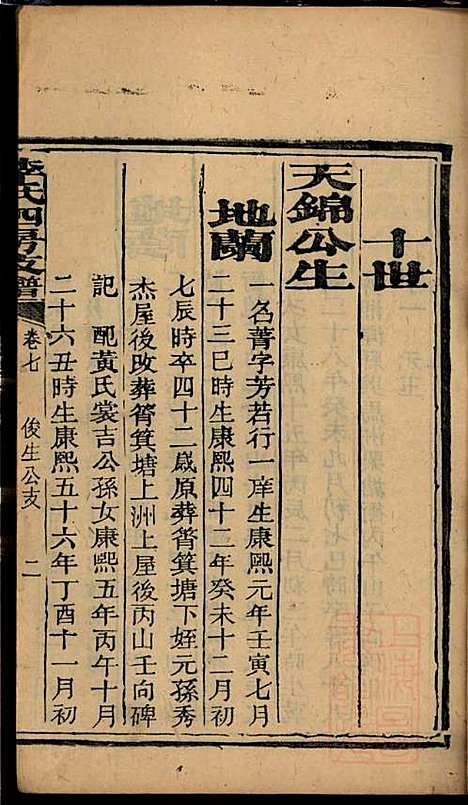 十世
天錦公生
地蘭
一名菁字芳若行一庠生康熙元年壬寅七月
二十三巳時生康熙四十二年癸未十二月初
七辰時卒四十二歲原葬筲箕塘下姪元孫秀
杰屋後改葬筲箕塘上洲上屋後丙山壬向碑
記 配黃氏裳吉公孫女康熙五年丙午十月
二十六丑時生康熙五十六年丁酉十一月初
氏四房支譜 卷七 俊生公支 二